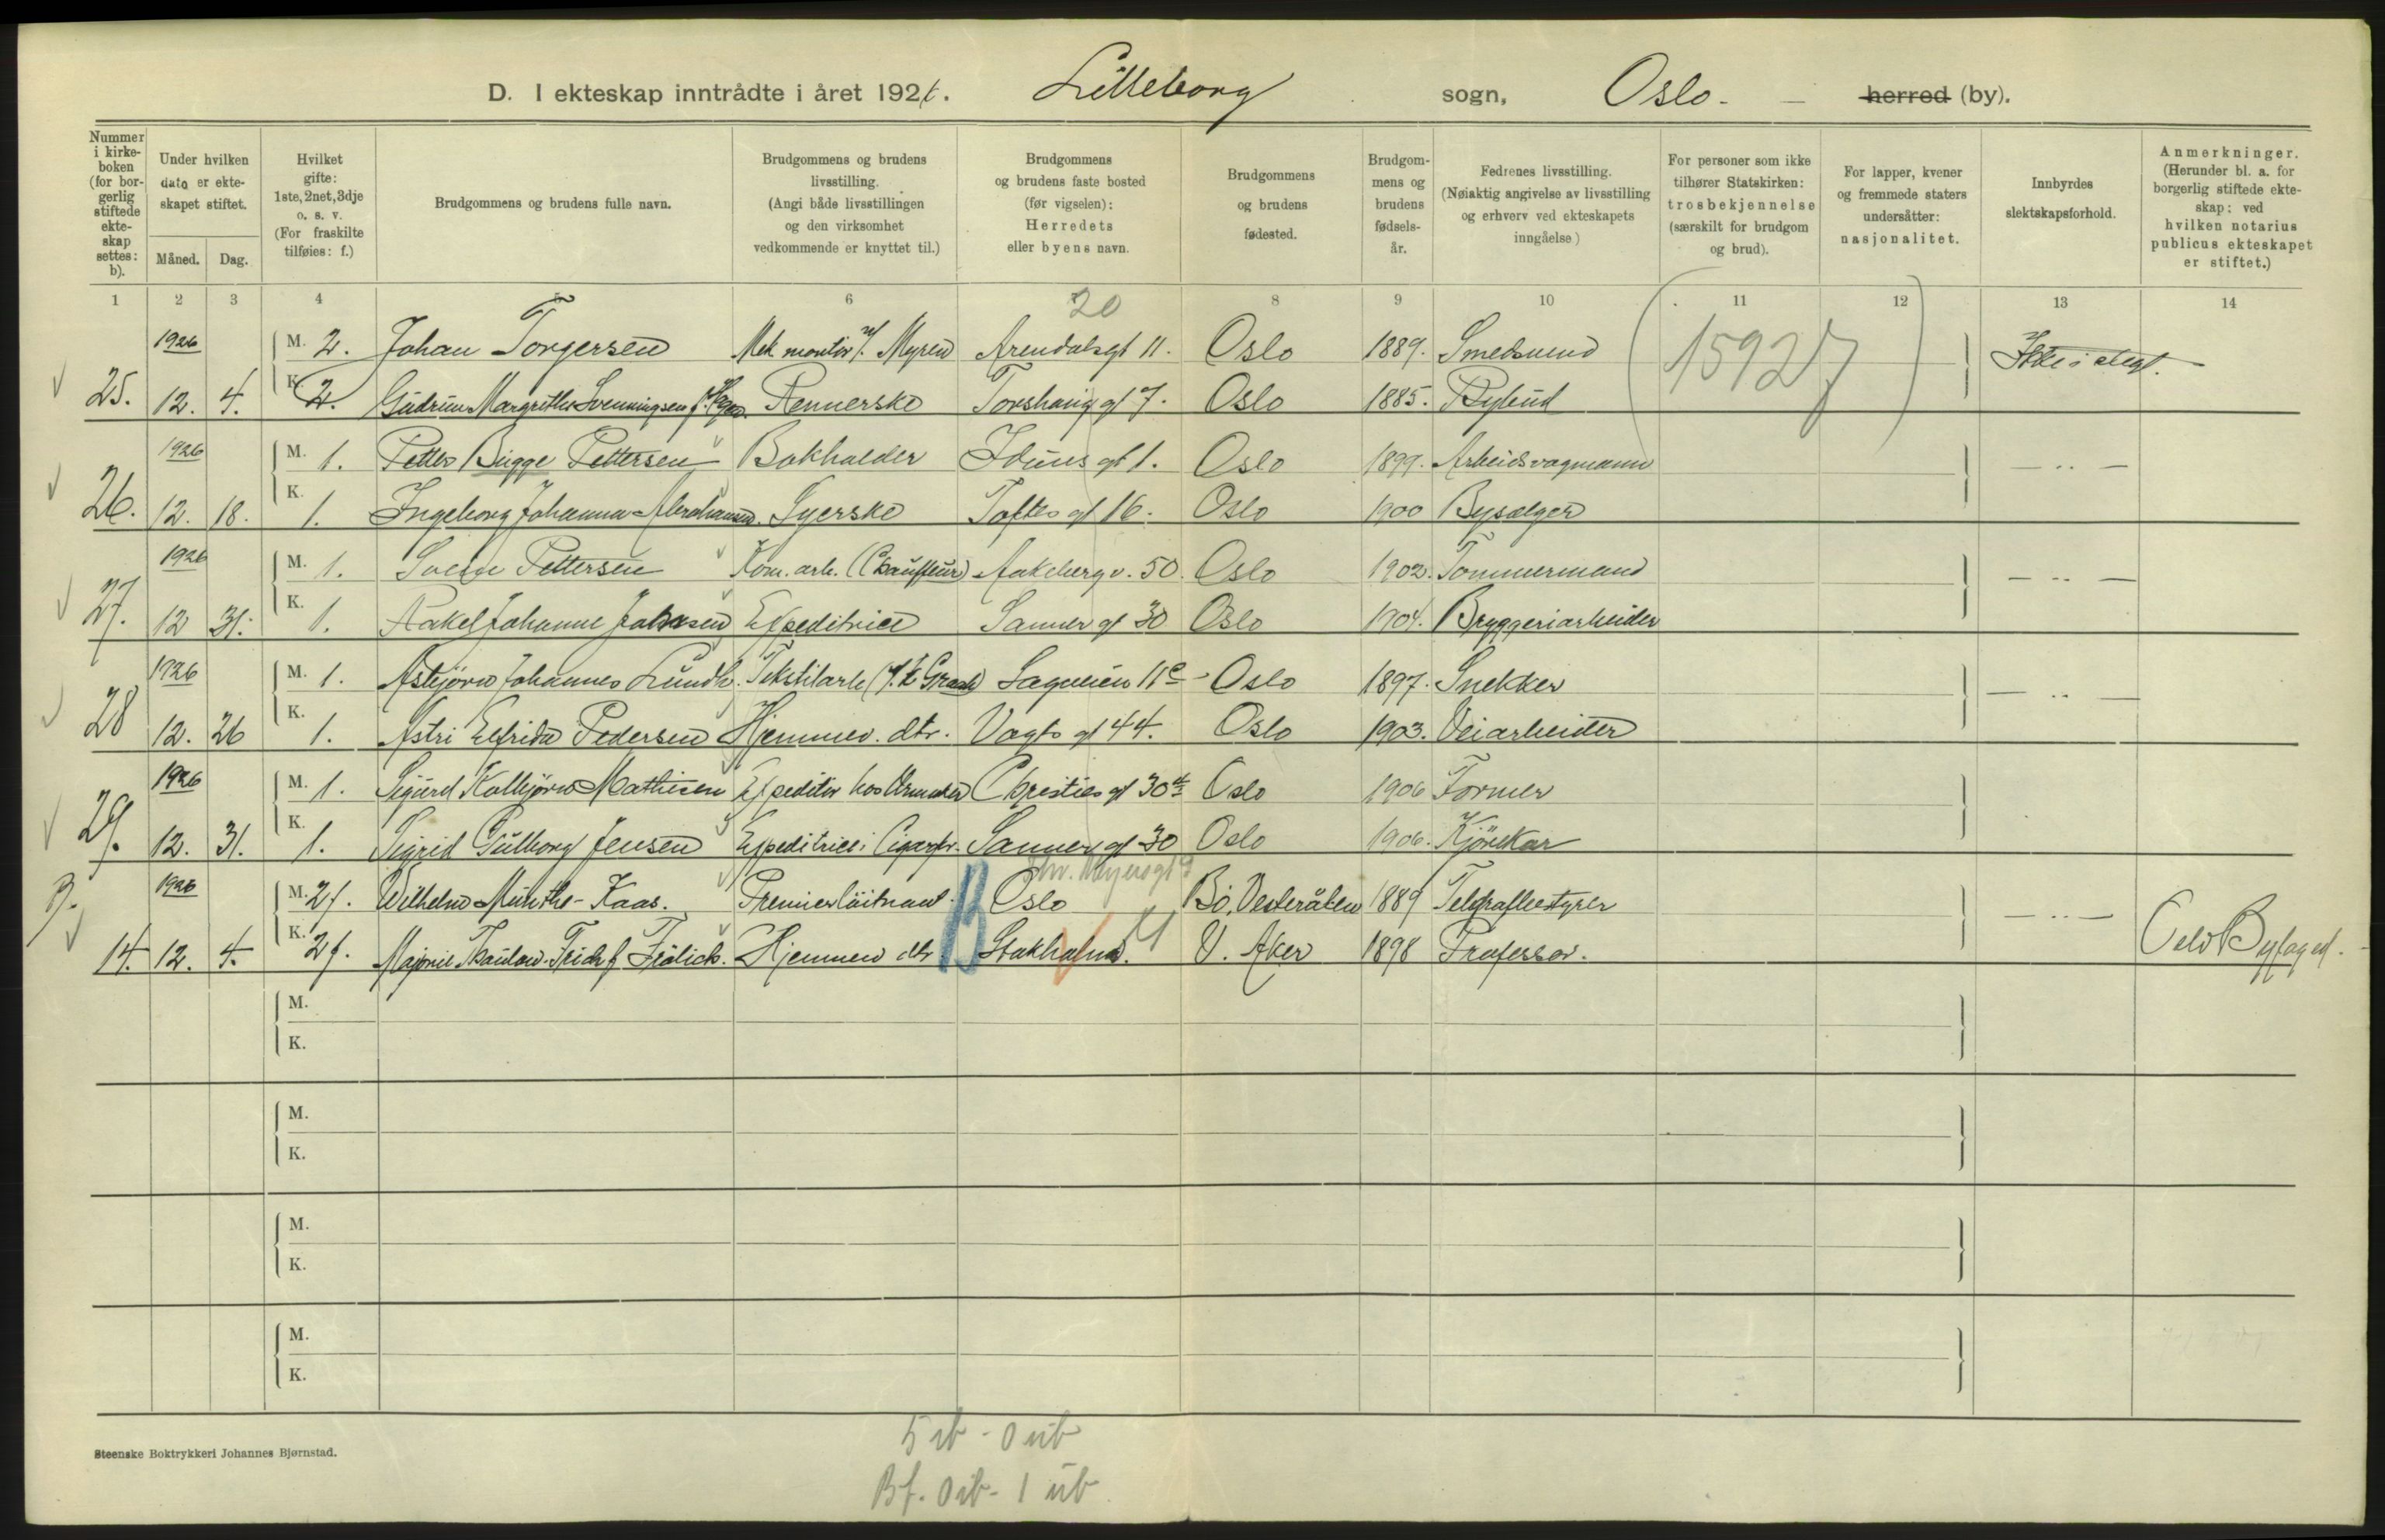 D. I ekteskap inntrådte i året 1926. Lilleborg sogn, Oslo. — herred (by).
Nummer i kirkeboken (for borgerlig stiftede ekteskap settes: b).
Under hvilken dato er ekteskapet stiftet.
Måned. Dag.
Hvilket gifte: 1ste, 2net, 3dje o. s. v. (For fraskilte tilføies: f.)
Brudgommens og brudens fulle navn.
Brudgommens og brudens livsstilling. (Angi både livsstillingen og den virksomhet vedkommende er knyttet til.)
Brudgommens og brudens faste bosted (før vigselen): Herredets eller byens navn.
Brudgommens og brudens fødested.
Brudgommens og brudens fødselsår.
Fedrenes livsstilling. (Nøiaktig angivelse av livsstilling og erhverv ved ekteskapets inngåelse)
For personer som ikke tilhører Statskirken: trosbekjennelse (særskilt for brudgom og brud).
For lapper, kvener og fremmede staters undersåtter: nasjonalitet.
Innbyrdes slektskapsforhold.
Anmerkninger. (Herunder bl. a. for borgerlig stiftede ekteskap: ved hvilken notarius publicus ekteskapet er stiftet.)
1 2 3 4 5 6 20 8 9 10 11 12 13 14
1926 M. 2. Johan Torgersen Mek montør v/ Myren Arendalsgt 11. Oslo 1889. Smedsvend (15927) Ikke i slegt.
25. 12. 4. K. 2. Gudrun Margrethe Svenningsen f. Rennerske Torshauggt 7. Oslo 1885. Bybud
1926 M. 1. Petter Bugge Pettersen Bokholder Iduns gt 1. Oslo 1899. Arbeidsvogmann — ·· —
26. 12. 18. K. 1. Ingeborg Johanna Abrahamsen. Syerske Toftes gt 16. Oslo 1900 Bysælger
1926 M. 1. Sverre Pettersen Kom. arb. (Chauffeur) Aakeberg v. 50. Oslo 1902. Tømmermand — ·· —
27. 12 31. K. 1. Rakel Johanne Johnsen Expeditrice Sanner gt 30 Oslo 1904. Bryggeriarbeider
1926 M. 1. Asbjørn Johannes Lundh. Tekstilarb (v/ k Graah) Sagveien 11c Oslo 1897. Snekker — ·· —
28 12. 26 K. 1. Astri Elfrida Pedersen Hjemmev. dtr. Vogts gt 44. Oslo 1903. Veiarbeider
1926 M. 1. Sigurd Kolbjørn Mathisen Expeditør hos Urmaker Christies gt 30 Oslo 1906 Former
29. 12. 31. K. 1. Sigrid Gulborg Jensen Expeditrice i Cigarfr. Sanner gt 30 Oslo 1906. Kjørekar
Thv. Meyersgt 9
B. 1926 M. 2f. Wilhelm Munthe-Kaas. Premierløitnant B Oslo Bø, Vesterålen 1889 Telegrafbestyrer — ·· —
14. 12. 4. K. 2f. Marjorie Thaulow-Trich f. Frölich. Hjemmev dtr Stokholm. V. Aker 1898 Professor. Oslo Byfoged.
M.
K.
M.
K.
M.
K.
M.
K.
5 ib - 0 ub
Bf. 0 ib - 1 ub
Steenske Boktrykkeri Johannes Bjørnstad.